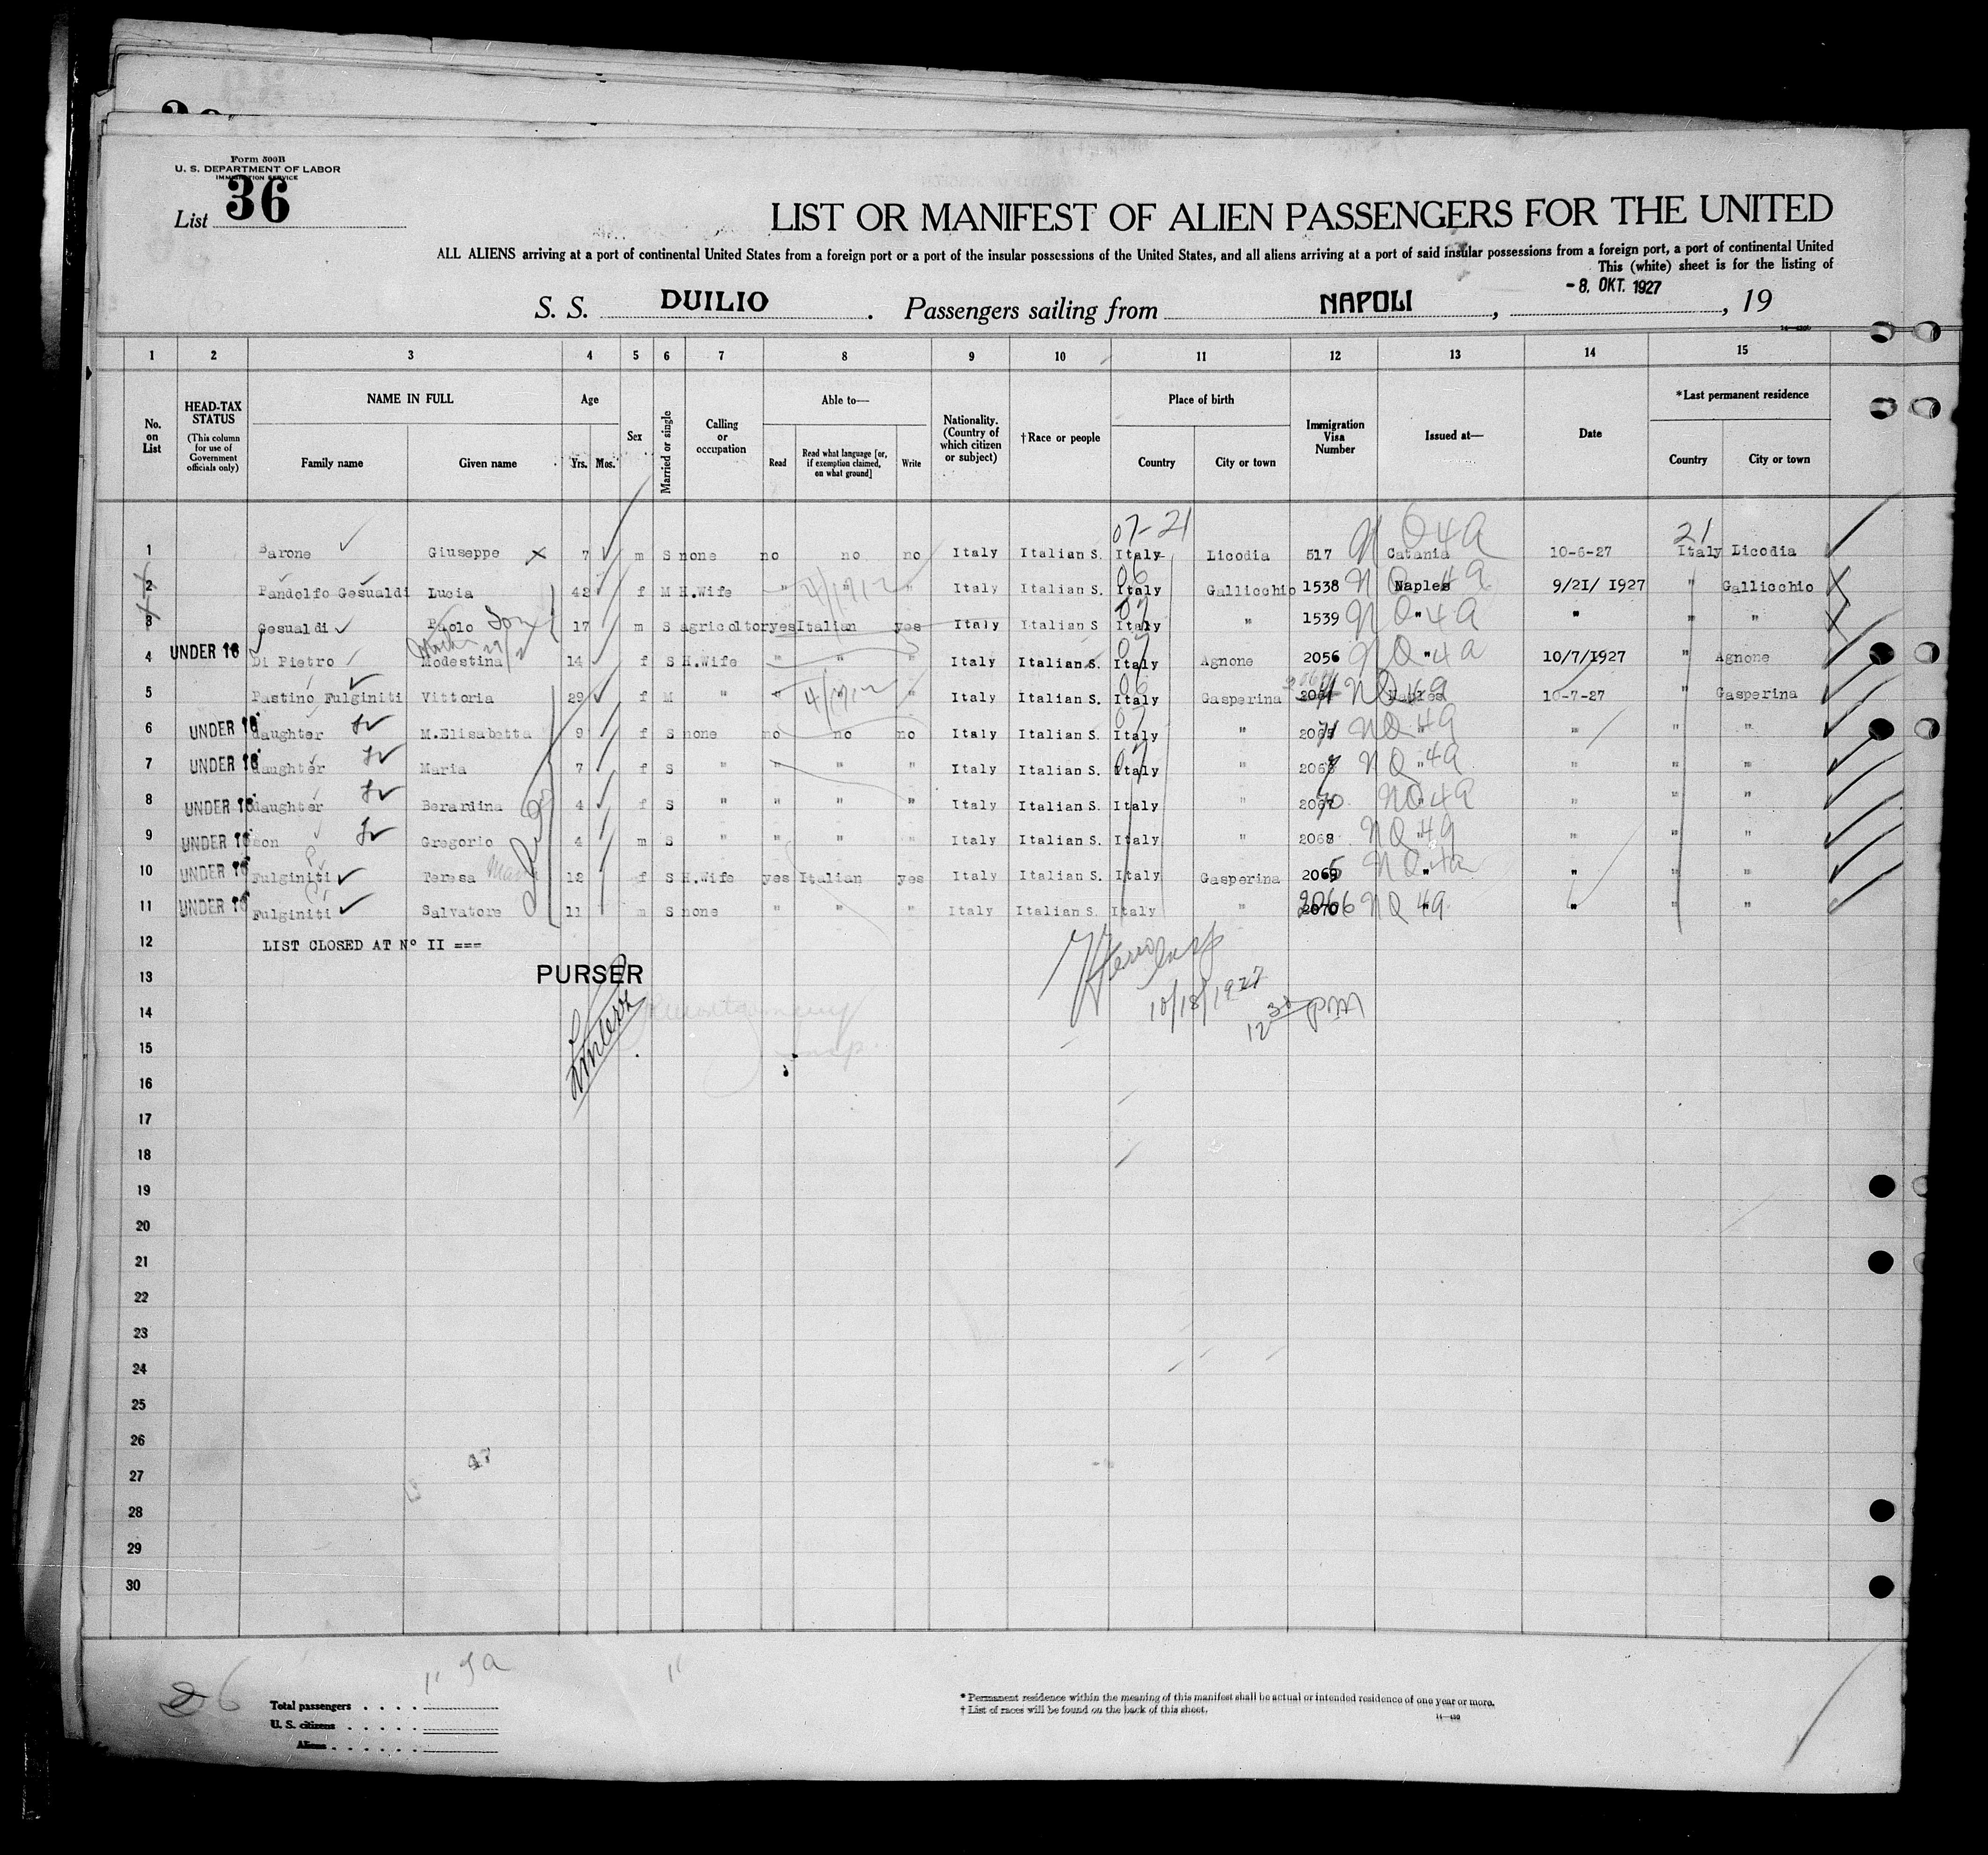 Form 500B
U. S. DEPARTMENT OF LABOR
IMMIGRATION SERVICE
List 36
LIST OR MANIFEST OF ALIEN PASSENGERS FOR THE UNITED
ALL ALIENS arriving at a port of continental United States from a foreign port or a port of the insular possessions of the United States, and all aliens arriving at a port of said insular possessions from a foreign port, a port of continental United
This (white) sheet is for the listing of
S. S. DUILIO . Passengers sailing from NAPOLI , -8. OKT. 1927 , 19
1 2 3 4 5 6 7 8 9 10 11 12 13 14 15
No. on List
HEAD-TAX STATUS
(This column for use of Government officials only)
NAME IN FULL
Family name
Given name
Age
Yrs. Mos.
Sex
Married or single
Calling or occupation
Able to—
Read
Read what language [or, if exemption claimed, on what ground]
Write
Nationality. (Country of which citizen or subject)
†Race or people
Place of birth
Country
City or town
Immigration Visa Number
Issued at—
Date
*Last permanent residence
Country
City or town
07-21 21
1 Barone Giuseppe x 7 m S none no no no Italy Italian S. Italy Licodia 517 Catania 10-6-27 Italy Licodia
2 Pandolfo Gesualdi Lucia 42 f M H.Wife " " " Italy Italian S. Italy Gallicchio 1538 Naples 9/21/ 1927 " Gallicchio
3 Gesualdi Paolo Son 17 m S agricoltor yes Italian yes Italy Italian S Italy " 1539 " " " "
4 UNDER 16 Di Pietro Modestina 14 f S H.Wife " " " Italy Italian S. Italy Agnone 2056 " 10/7/1927 " Agnone
5 Pastino Fulginiti Vittoria 29 f M " " " Italy Italian S. Italy Gasperina Naples 10-7-27 " Gasperina
6 UNDER 16 daughter M.Elisabetta 9 f S none no no no Italy Italian S. Italy " " " " "
7 UNDER 16 daughter Maria 7 f S " " " " Italy Italian S. Italy " " " " "
8 UNDER 16 daughter Berardina 4 f S " " " " Italy Italian S. Italy " " " " "
9 UNDER 16 son Gregorio 4 m S " " " " Italy Italian S. Italy " 2068 " " " "
10 UNDER 16 Fulginiti Teresa 12 f S H.Wife yes Italian yes Italy Italian S. Italy Gasperina " " " "
11 UNDER 16 Fulginiti Salvatore 11 m S none " " " Italy Italian S. Italy " 2066 2070 " " "
12 LIST CLOSED AT No II ===
13 PURSER
10/18/1927
14
12 30 PM
15
16
17
18
19
20
21
22
23
24
25
26
27
28
29
30
47
Total passengers
U. S. citizens
Aliens
* Permanent residence within the meaning of this manifest shall be actual or intended residence of one year or more.
† List of races will be found on the back of this sheet.